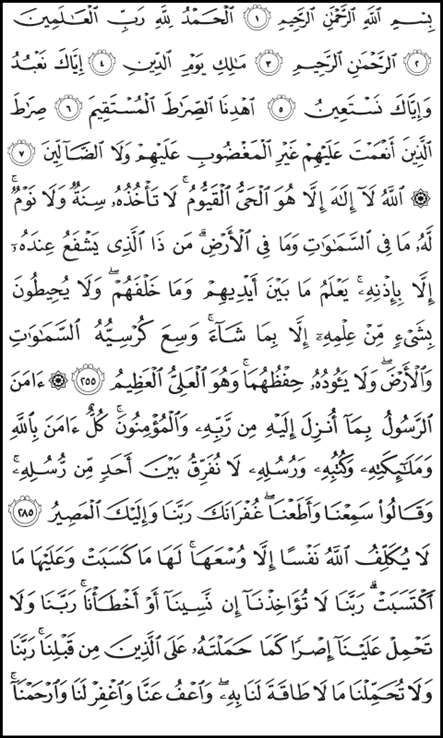 بِسْمِ اللَّهِ الرَّحْمَٰنِ الرَّحِيمِ ۝١ الْحَمْدُ لِلَّهِ رَبِّ الْعَالَمِينَ
۝٢ الرَّحْمَٰنِ الرَّحِيمِ ۝٣ مَالِكِ يَوْمِ الدِّينِ ۝٤ إِيَّاكَ نَعْبُدُ
وَإِيَّاكَ نَسْتَعِينُ ۝٥ اهْدِنَا الصِّرَاطَ الْمُسْتَقِيمَ ۝٦ صِرَاطَ
الَّذِينَ أَنْعَمْتَ عَلَيْهِمْ غَيْرِ الْمَغْضُوبِ عَلَيْهِمْ وَلَا الضَّالِّينَ ۝٧
۞ اللَّهُ لَا إِلَٰهَ إِلَّا هُوَ الْحَيُّ الْقَيُّومُ ۚ لَا تَأْخُذُهُ سِنَةٌ وَلَا نَوْمٌ ۚ
لَهُ مَا فِي السَّمَاوَاتِ وَمَا فِي الْأَرْضِ ۗ مَن ذَا الَّذِي يَشْفَعُ عِندَهُ
إِلَّا بِإِذْنِهِ ۚ يَعْلَمُ مَا بَيْنَ أَيْدِيهِمْ وَمَا خَلْفَهُمْ ۖ وَلَا يُحِيطُونَ
بِشَيْءٍ مِّنْ عِلْمِهِ إِلَّا بِمَا شَاءَ ۚ وَسِعَ كُرْسِيُّهُ السَّمَاوَاتِ
وَالْأَرْضَ ۖ وَلَا يَئُودُهُ حِفْظُهُمَا ۚ وَهُوَ الْعَلِيُّ الْعَظِيمُ ۝٢٥٥ ۞ ءَامَنَ
الرَّسُولُ بِمَا أُنزِلَ إِلَيْهِ مِن رَّبِّهِ وَالْمُؤْمِنُونَ ۚ كُلٌّ ءَامَنَ بِاللَّهِ
وَمَلَائِكَتِهِ وَكُتُبِهِ وَرُسُلِهِ لَا نُفَرِّقُ بَيْنَ أَحَدٍ مِّن رُّسُلِهِ ۚ
وَقَالُوا سَمِعْنَا وَأَطَعْنَا ۖ غُفْرَانَكَ رَبَّنَا وَإِلَيْكَ الْمَصِيرُ ۝٢٨٥
لَا يُكَلِّفُ اللَّهُ نَفْسًا إِلَّا وُسْعَهَا ۚ لَهَا مَا كَسَبَتْ وَعَلَيْهَا مَا
اكْتَسَبَتْ ۗ رَبَّنَا لَا تُؤَاخِذْنَا إِن نَّسِينَا أَوْ أَخْطَأْنَا ۚ رَبَّنَا وَلَا
تَحْمِلْ عَلَيْنَا إِصْرًا كَمَا حَمَلْتَهُ عَلَى الَّذِينَ مِن قَبْلِنَا ۚ رَبَّنَا
وَلَا تُحَمِّلْنَا مَا لَا طَاقَةَ لَنَا بِهِ ۖ وَاعْفُ عَنَّا وَاغْفِرْ لَنَا وَارْحَمْنَا ۚ